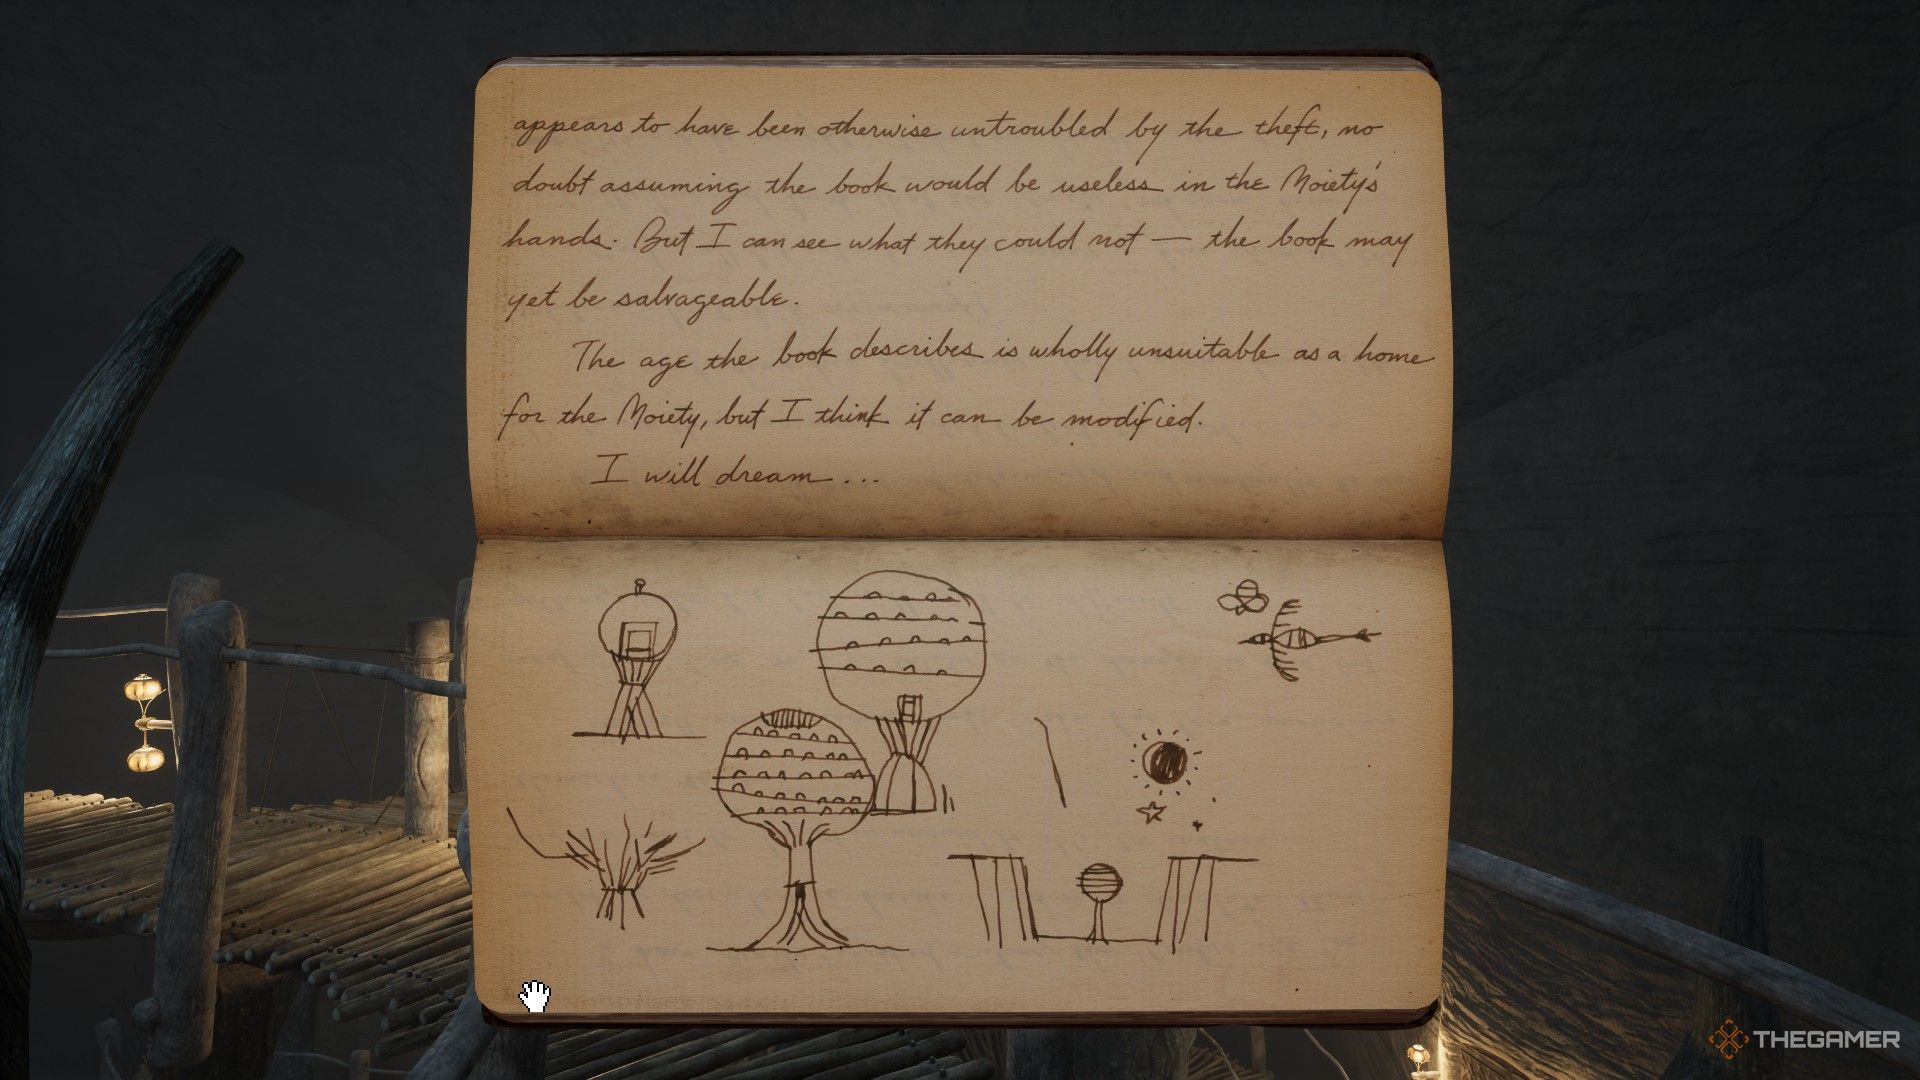 appears to have been otherwise untroubled by the theft, no
doubt assuming the book would be useless in the Moiety's
hands. But I can see what they could not — the book may
yet be salvageable.
The age the book describes is wholly unsuitable as a home
for the Moiety, but I think it can be modified.
I will dream...
THEGAMER